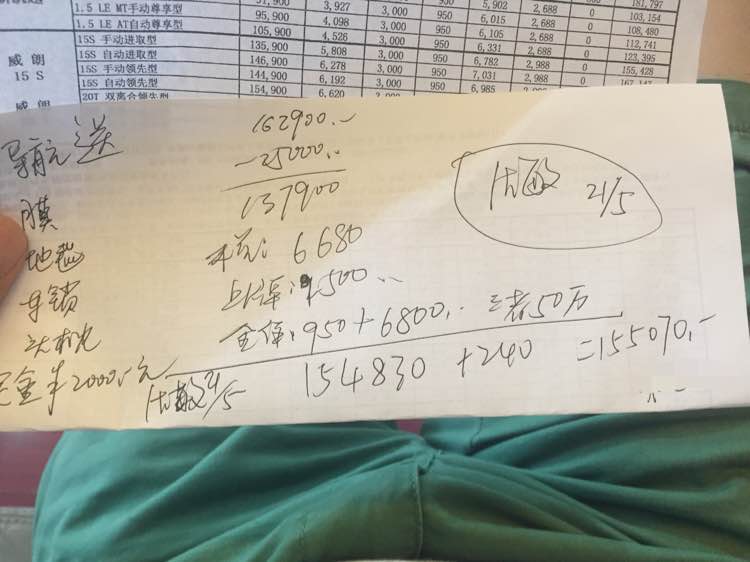 51,900 3,927 950 5,902 2,688 181,797
1.5 LE MT手动尊享型 95,900 4,098 3,000 950 6,015 2,688 0 103,154
1.5 LE AT自动尊享型 105,900 4,526 3,000 950 6,105 2,688 0 108,480
15S 手动进取型 135,900 5,808 3,000 950 6,331 2,688 0 112,741
15S 自动进取型 146,900 6,278 3,000 950 6,782 2,988 0 123,395
15S 手动领先型 144,900 6,192 3,000 950 7,031 2,988 0 155,428
15S 自动领先型 154,900 6,620 950 6,985
20T 双离合领先型
威朗
15 S
威朗
导航 送 162900.-
-25000.-
膜 137900
地毯 税: 6680
车锁 上牌: 2500.-
头枕 全保: 950+6800.- 三者50万
定金半2000.元 21/5 154830 +240 =155070.-
21/5